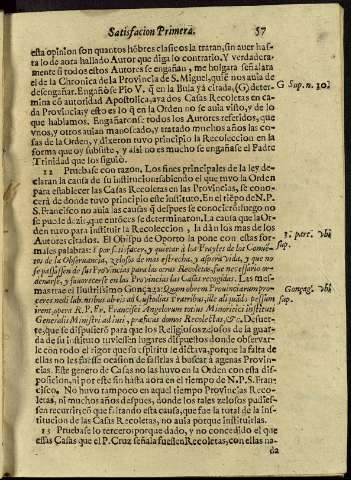 Satisfacion Primera. 57
esta opinion son quantos hõbres clasicos la tratan, sin auer has-
ta lo de aora hallado Autor que diga lo contrario. Y verdadera-
mente si todos estos Autores se engañan, me holgara señalara
el de la Chronica de la Prouincia de S. Miguel, quiẽ nos auia de
desengañar. Engañose S. Pio V. q̃ en la Bula yà citada, (G) deter-
G Sup. n. 10.
mina cõ autoridad Apostolica, aya dos Casas Recoletas en ca-
da Prouincia; y esto es lo q̃ en la Orden no se auia visto, y de lo
que hablamos. Engañaronse todos los Autores referidos, que
vnos, y otros auian manoseado, y tratado muchos años las co-
sas de la Orden, y dixeron tuuo principio la Recoleccion en la
forma que oy subsiste, y assi no es mucho se engañasse el Padre
Trinidad que los siguiò.
12 Pruebase con razon. Los fines principales de la ley de-
claran la causa de su institucion: sabiendo el que tuuo la Orden
para establecer las Casas Recoletas en las Prouincias, se cono-
cerà de donde tuuo principio este instituto. En el tiẽpo de N.P.
S. Francisco no auia las causas q̃ despues se conocierõ: luego no
se puede dezir, que entõces se determinaron. La causa que la Or-
den tuuo para instituir la Recoleccion, la dàn los mas de los
Autores citados. El Obispo de Oporto la pone con estas for-
3. part. vbi
males palabras:
sup.
de la Observancia, zelosos de mas estrecha, y aspera vida, y que no
se passassen de sus Prouincias para las otras Recoletas, fue necessario or-
denarse, y fauorecerse en las Prouincias las Casas recogidas. Las mes-
mas trae el Ilustrissimo Gonçaga:
Gonçag. vbi
sup.
Generalis Ministri adiuti, præfatas domos Recollectas, &c. Desuer-
te, que se dispusierõ para que los Religiosos zelosos de la guar-
da de su instituto tuuiessen lugares dispuestos donde obseruar-
lo con todo el rigor que su espiritu le dictaua, porque la falta de
ellas no les fuesse ocasion de salirlas à buscar à agenas Prouin-
cias. Este genero de Casas no las huuo en la Orden con esta dis-
posicion, ni por este fin hasta aora en el tiempo de N.P.S. Fran-
cisco. No huuo tampoco en aquel tiempo Prouincias Recole-
tas, ni muchos años despues, donde los tales zelosos pudies-
sen recurrir; cõ que faltando esta causa, que fue la total de la ins-
titucion de las Casas Recoletas, no auia porque instituirlas.
13 Pruebase lo tercero; porque dado, y no concedido el que
essas Casas que el P. Cruz señala fuessen Recoletas, con ellas na-
da